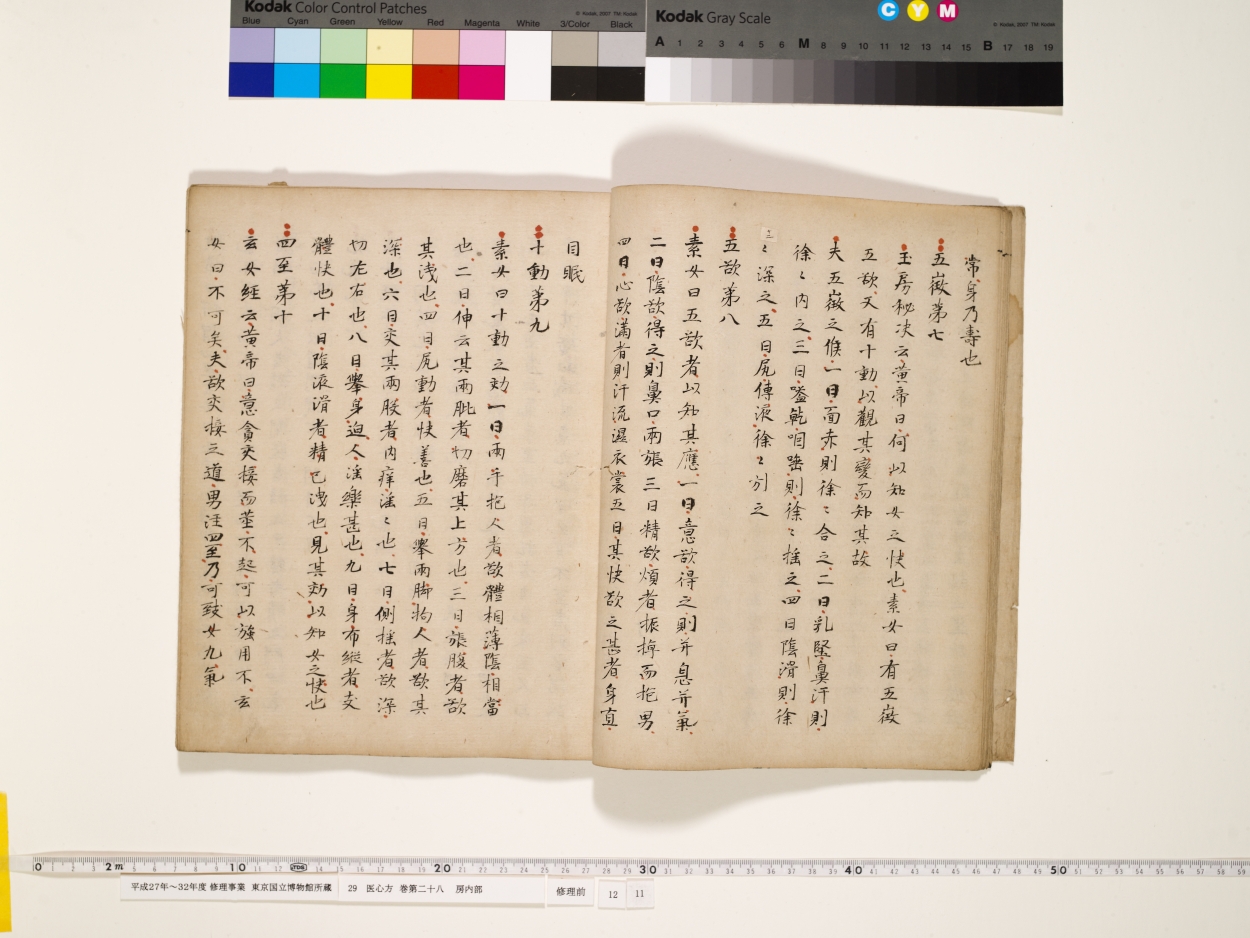 Kodak Color Control Patches
Blue Cyan Green Yellow Red Magenta White 3/Color Black
© Kodak, 2007 TM: Kodak
Kodak Gray Scale
C Y M
© Kodak, 2007 TM: Kodak
A 1 2 3 4 5 6 M 8 9 10 11 12 13 14 15 B 17 18 19
常身乃壽也
五徴第七
玉房秘决云黄帝曰何以知女之快也素女曰有五徴
五欲又有十動以觀其變而知其故
夫五徴之候一曰面赤則徐〻合之二曰乳堅鼻汗則
徐〻内之三曰嗌乾咽唾則徐〻揺之四曰陰滑則徐
〻深之五曰尻傳液徐〻引之
五欲第八
素女曰五欲者以知其應一曰意欲得之則并息并氣
二曰陰欲得之則鼻口兩張三曰精欲煩者振掉而抱男
四曰心欲滿者則汗流濕衣裳五曰其快欲之甚者身直
目眠
十動第九
素女曰十動之効一曰兩手抱人者欲體相薄陰相當
也二曰伸云其兩肶者切磨其上方也三曰張腹者欲
其淺也四曰尻動者快善也五曰擧兩脚拘人者欲其
深也六曰交其兩股者内痒淫〻也七曰側揺者欲深
切左右也八曰擧身迫人淫樂甚也九曰身布縱者支
體快也十曰陰液滑者精已洩也見其効以知女之快也
四至第十
玄女經云黄帝曰意貪交接而莖不起可以强用不玄
女曰不可矣夫欲交接之道男注四至乃可致女九氣
平成27年～32年度 修理事業 東京国立博物館所蔵
29 医心方 巻第二十八 房内部
修理前
12
11